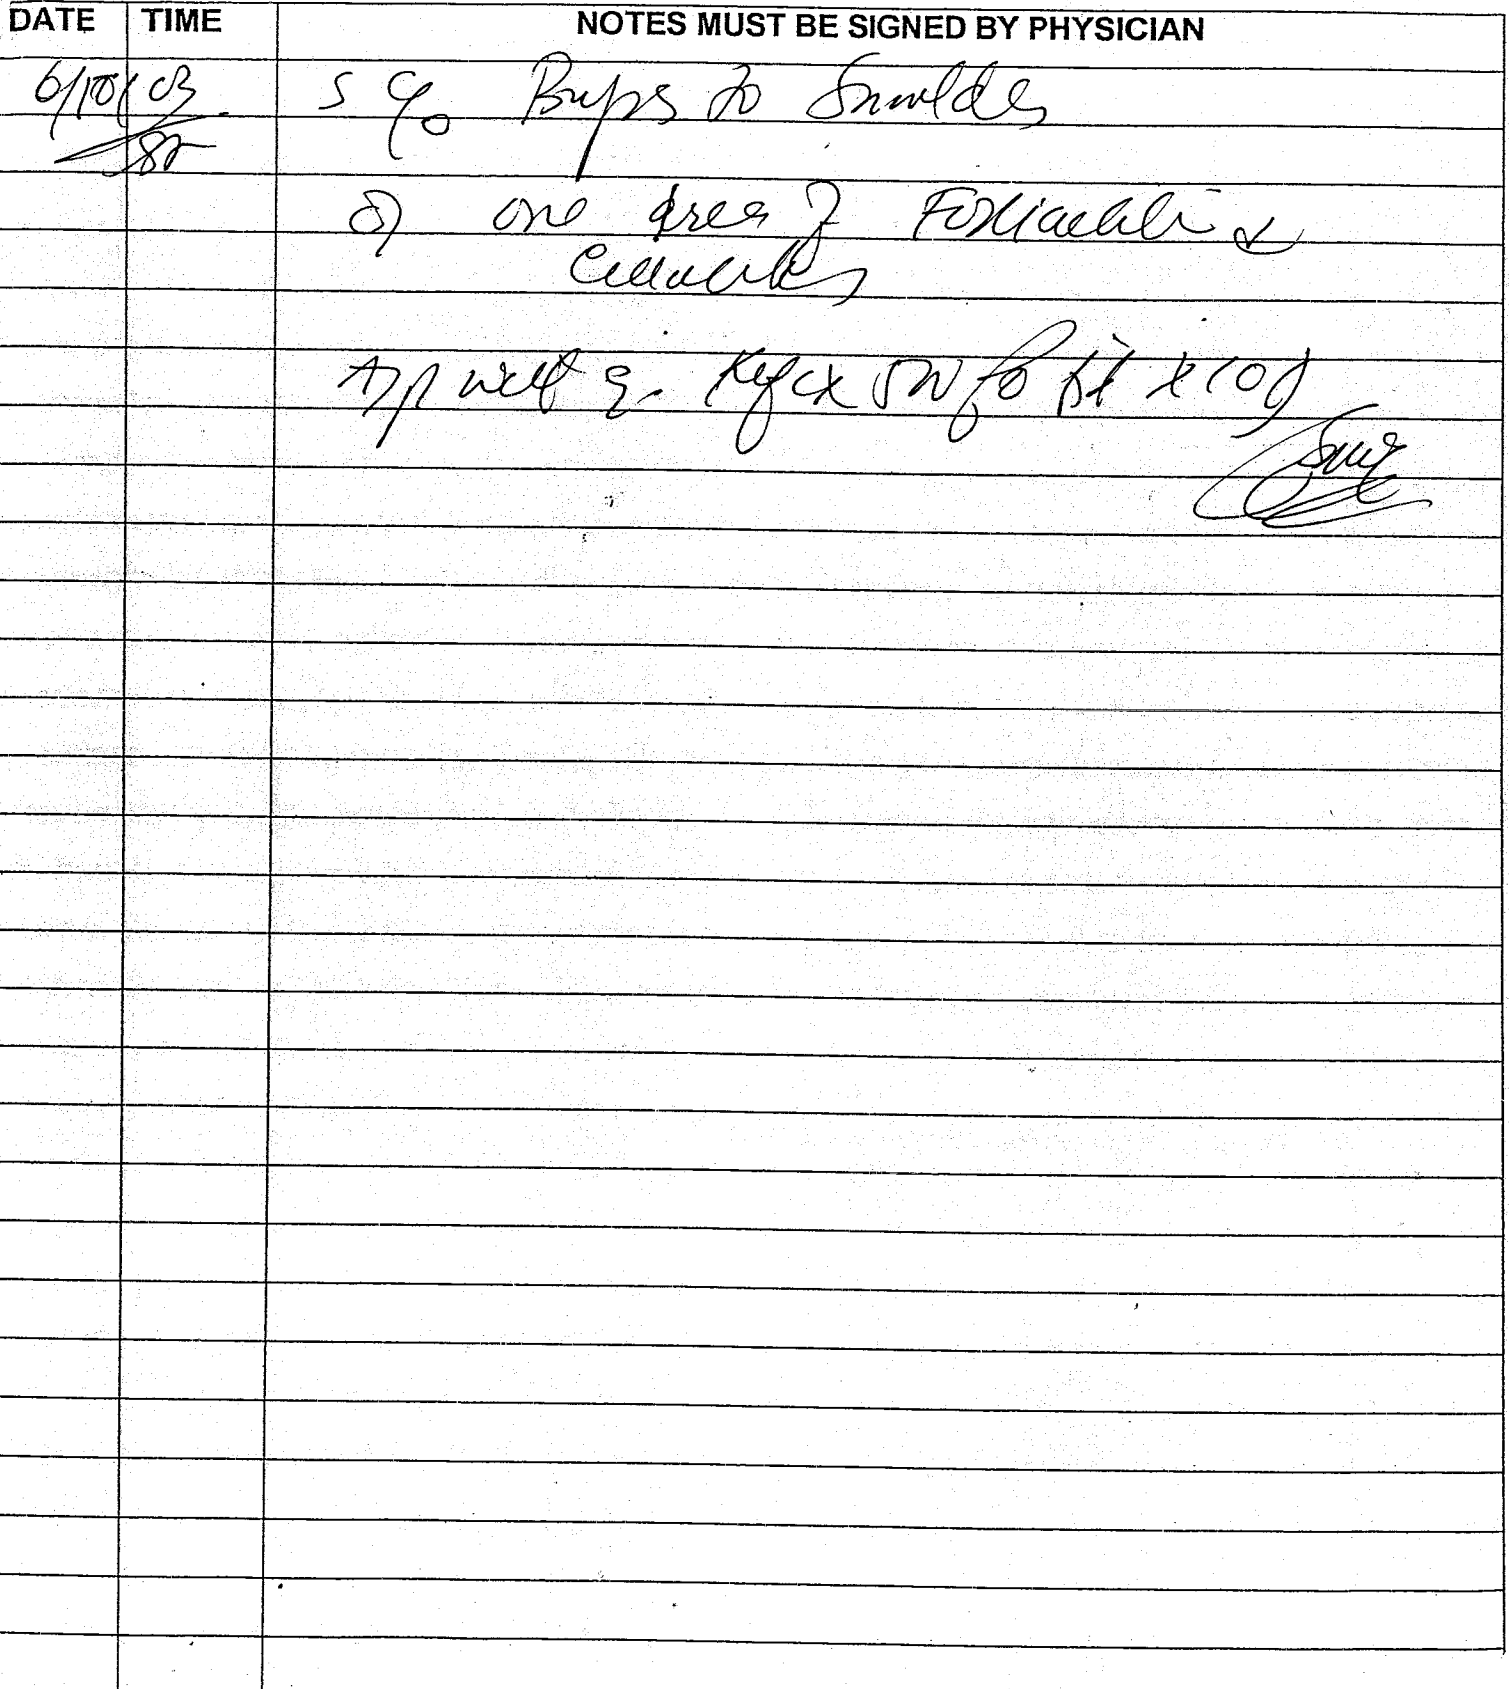 DATE TIME NOTES MUST BE SIGNED BY PHYSICIAN
6/10/03 S c/o Bumps to Shoulder
O) one area of Folliculitis &
Cellulitis
A/P will Keflex 500 po x 10d